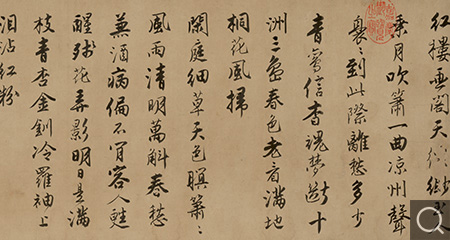 紅樓畫閣天縹緲玉
乘月吹簫一曲涼州聲
裊〻到此際離愁多少
青鸞信杳魂夢斷十
洲三島春色老音滿地
桐花風掃
閑庭細草天色暝簫〻
風雨清明萬斛春愁
兼酒病偏不肯容人甦
醒殘花弄影明日是滿
枝青杏金釧冷羅袖上
淚沾紅粉